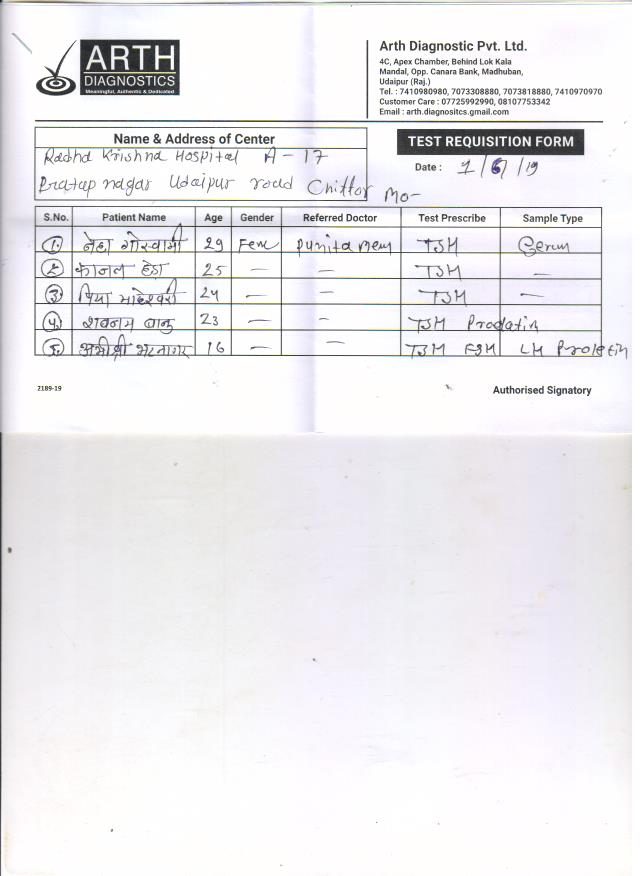 ARTH
DIAGNOSTICS
Meaningful, Authentic & Dedicated
Arth Diagnostic Pvt. Ltd.
4C, Apex Chamber, Behind Lok Kala
Mandal, Opp. Canara Bank, Madhuban,
Udaipur (Raj.)
Tel. : 7410980980, 7073308880, 7073818880, 7410970970
Customer Care : 07725992990, 08107753342
Email : arth.diagnositcs.gmail.com
Name & Address of Center
TEST REQUISITION FORM
Radha Krishna Hospital A-17
Date : 1/6/19
Pratap nagar Udaipur road Chittor Mo-
S.No. Patient Name Age Gender Referred Doctor Test Prescribe Sample Type
1. नेहा गोस्वामी 29 Fem punita mem TSH Serum
2. काजल हेडा 25 — — TSH —
3. प्रिया माहेश्वरी 24 — — TSH —
4. शबनम बानु 23 — - TSH Prodatin
5. भटनागर 16 — — TSH FSH LH Prolatin
2189-19
Authorised Signatory